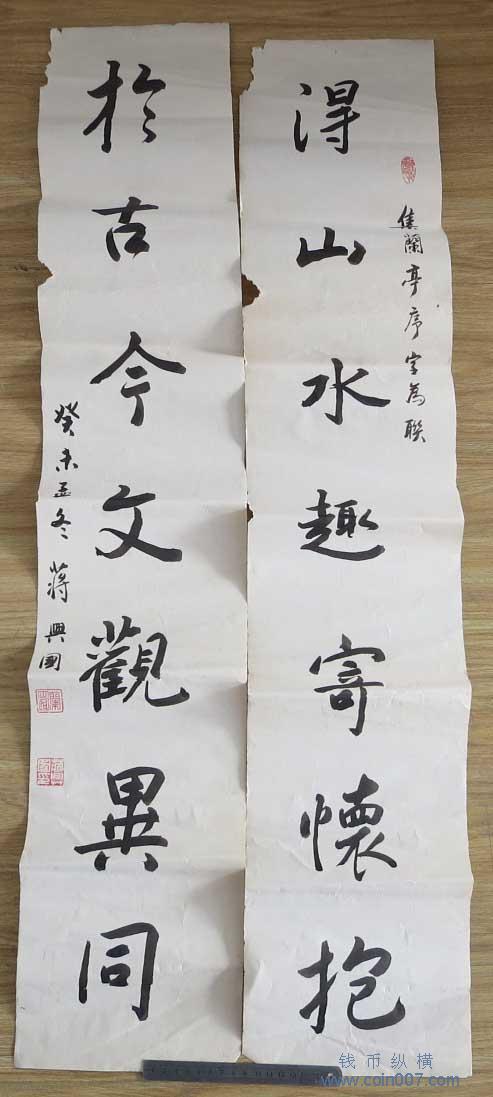 得山水趣寄懷抱
集蘭亭序字為聯
於古今文觀異同
癸未孟冬 蔣興國
钱币纵横
www.coin007.com